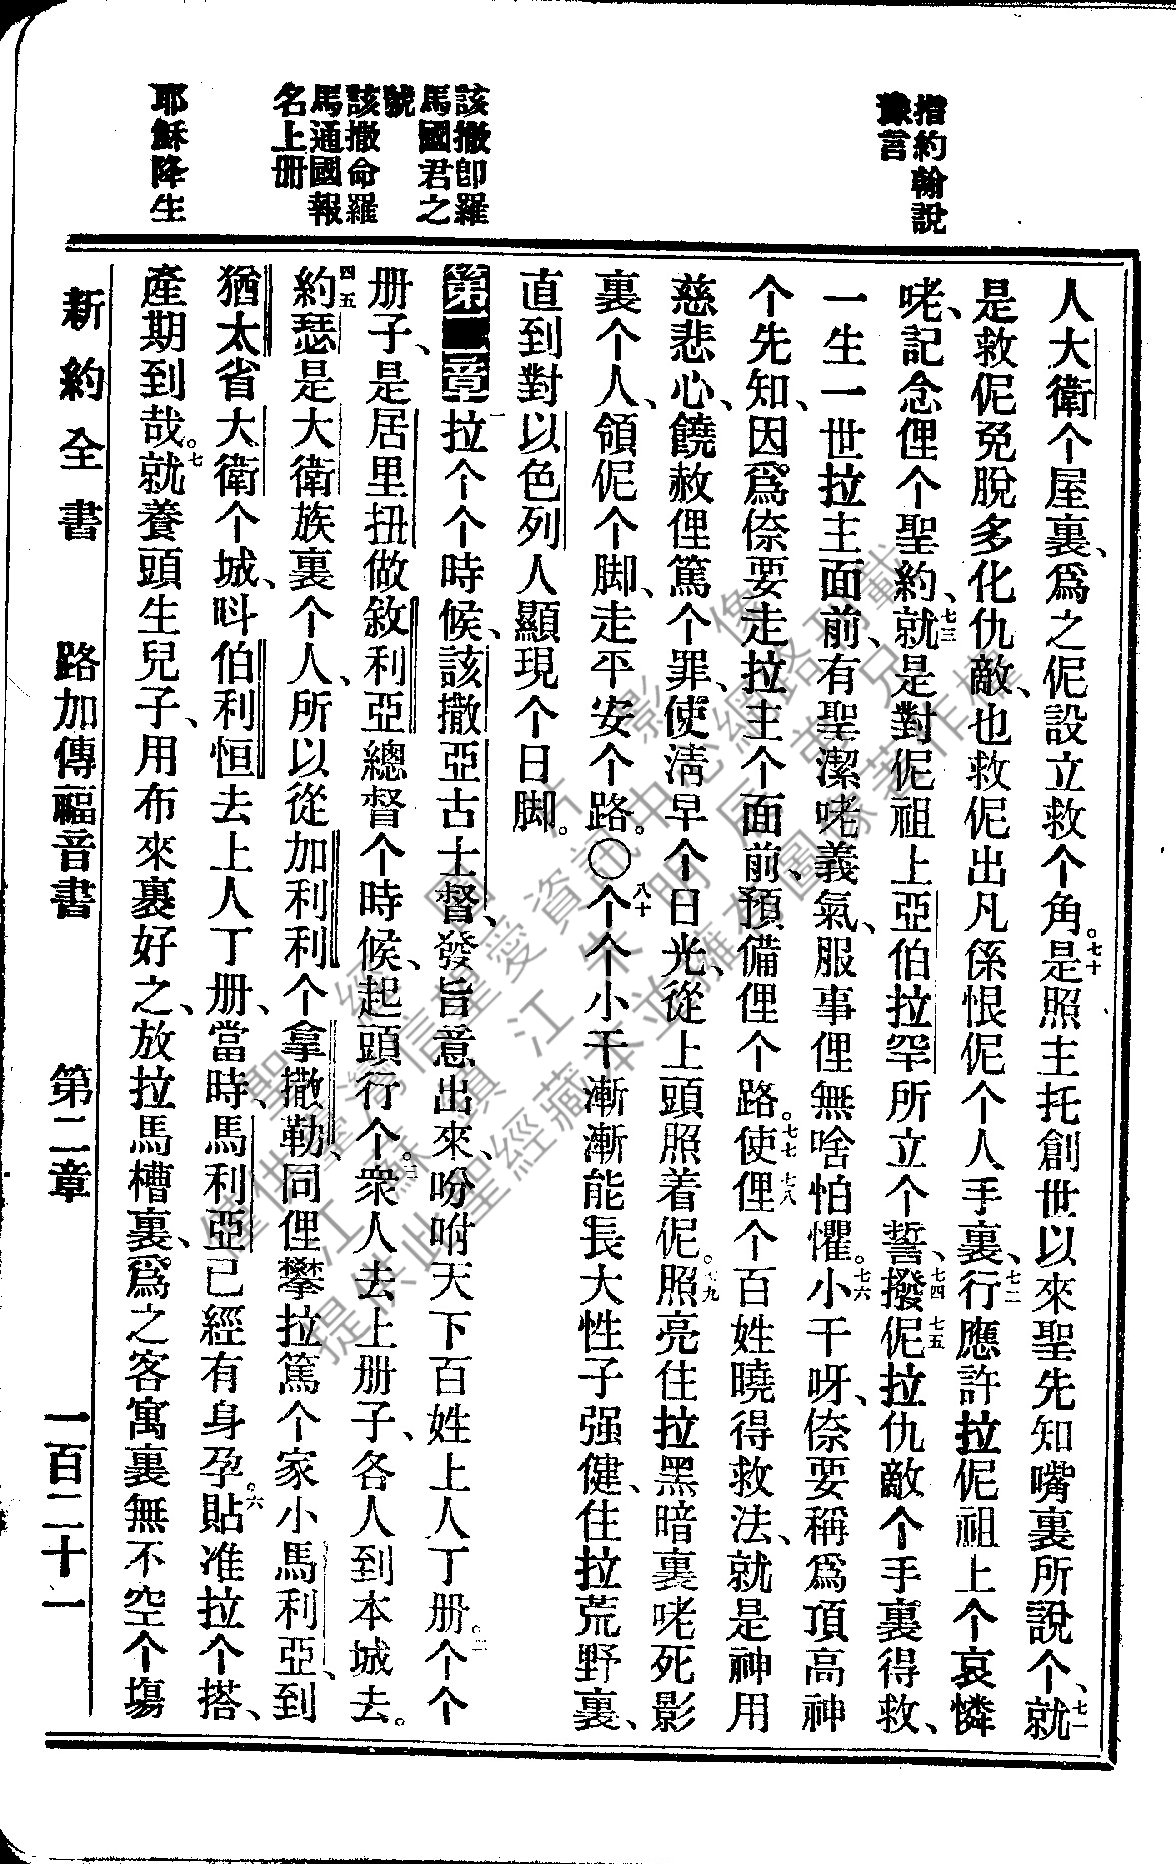 指約翰說
豫言
該撒卽羅
馬國君之
號
該撒命羅
馬通國報
名上册
耶穌降生
人大衛个屋裏、爲之伲設立救个角。七十是照主托創世以來聖先知嘴裏所說个、七一就
是救伲免脫多化仇敵、也救伲出凡係恨伲个人手裏、七二行應許拉伲祖上个哀憐
咾、記念俚个聖約、七三就是對伲祖上亞伯拉罕所立个誓、七四撥伲七五拉仇敵个手裏得救、
一生一世拉主面前、有聖潔咾義氣、服事俚無啥怕懼。七六小干呀、倷要稱爲頂高神
个先知、因爲倷要走拉主个面前、預備俚个路。七七使俚七八个百姓曉得救法、就是神用
慈悲心、饒赦俚篤个罪、使淸早个日光、從上頭照着伲。七九照亮住拉黑暗裏咾死影
裏个人、領伲个脚、走平安个路。〇八十个个小干漸漸能長大性子强健、住拉荒野裏、
直到對以色列人顯現个日脚。
第二章一拉个个時候、該撒亞古士督、發旨意出來、吩咐天下百姓上人丁册。二个个
册子、是居里扭做敘利亞總督个時候、起頭行个。三衆人去上册子、各人到本城去。
四五約瑟是大衛族裏个人、所以從加利利个拿撒勒、同俚攀拉篤个家小馬利亞、到
猶太省大衛个城、呌伯利恒去上人丁册、當時、馬利亞已經有身孕。六貼准拉个搭、
產期到哉。七就養頭生兒子、用布來裹好之、放拉馬槽裏、爲之客寓裏無不空个塲
新約全書 路加傳福音書 第二章 一百二十一